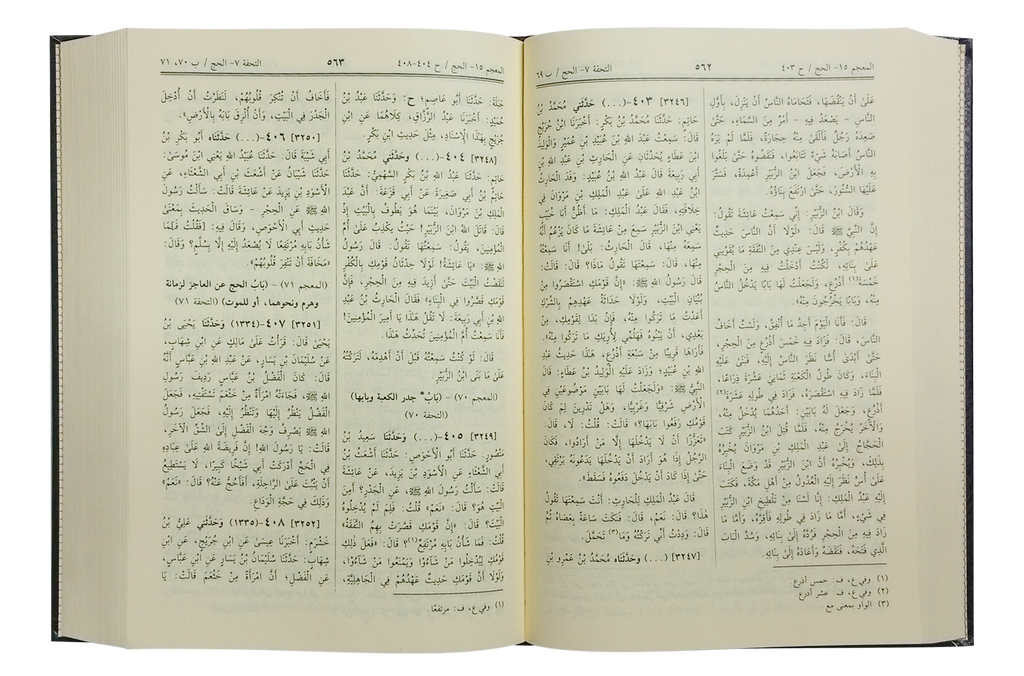 المعجم ١٥- الحج / ح ٤٠٣
٥٦٢
التحفة ٧- الحج / ب ٦٩
عَلَى أَنْ يَنْقُضَهَا، فَتَحَامَاهُ النَّاسُ أَنْ يَنْزِلَ، بِأَوَّلِ
النَّاسِ - يَصْعَدُ فِيهِ - أَمْرٌ مِنَ السَّمَاءِ، حَتَّى
صَعِدَهُ رَجُلٌ فَأَلْقَى مِنْهُ حِجَارَةً، فَلَمَّا لَمْ يَرَهُ
النَّاسُ أَصَابَهُ شَيْءٌ تَتَابَعُوا، فَنَقَضُوهُ حَتَّى بَلَغُوا
بِهِ الْأَرْضَ، فَجَعَلَ ابْنُ الزُّبَيْرِ أَعْمِدَةً، فَسَتَّرَ
عَلَيْهَا السُّتُورَ، حَتَّى ارْتَفَعَ بِنَاؤُهُ.
وَقَالَ ابْنُ الزُّبَيْرِ: إِنِّي سَمِعْتُ عَائِشَةَ تَقُولُ:
إِنَّ النَّبِيَّ ﷺ قَالَ: «لَوْلَا أَنَّ النَّاسَ حَدِيثٌ
عَهْدُهُمْ بِكُفْرٍ، وَلَيْسَ عِنْدِي مِنَ النَّفَقَةِ مَا يُقَوِّينِي
عَلَى بِنَائِهِ، لَكُنْتُ أَدْخَلْتُ فِيهِ مِنَ الْحِجْرِ
خَمْسَةَ(١) أَذْرُعٍ، وَلَجَعَلْتُ لَهَا بَابًا يَدْخُلُ النَّاسُ
مِنْهُ، وَبَابًا يَخْرُجُونَ مِنْهُ».
قَالَ: فَأَنَا الْيَوْمَ أَجِدُ مَا أُنْفِقُ، وَلَسْتُ أَخَافُ
النَّاسَ، قَالَ: فَزَادَ فِيهِ خَمْسَ أَذْرُعٍ مِنَ الْحِجْرِ،
حَتَّى أَبْدَى أُسًّا نَظَرَ النَّاسُ إِلَيْهِ، فَبَنَى عَلَيْهِ
الْبِنَاءَ، وَكَانَ طُولُ الْكَعْبَةِ ثَمَانِيَ عَشْرَةَ ذِرَاعًا،
فَلَمَّا زَادَ فِيهِ اسْتَقْصَرَهُ، فَزَادَ فِي طُولِهِ عَشْرَةَ(٢)
أَذْرُعٍ، وَجَعَلَ لَهُ بَابَيْنِ: أَحَدُهُمَا يُدْخَلُ مِنْهُ،
وَالْآخَرُ يُخْرَجُ مِنْهُ، فَلَمَّا قُتِلَ ابْنُ الزُّبَيْرِ كَتَبَ
الْحَجَّاجُ إِلَى عَبْدِ الْمَلِكِ بْنِ مَرْوَانَ يُخْبِرُهُ
بِذَلِكَ، وَيُخْبِرُهُ أَنَّ ابْنَ الزُّبَيْرِ قَدْ وَضَعَ الْبِنَاءَ
عَلَى أُسٍّ نَظَرَ إِلَيْهِ الْعُدُولُ مِنْ أَهْلِ مَكَّةَ، فَكَتَبَ
إِلَيْهِ عَبْدُ الْمَلِكِ: إِنَّا لَسْنَا مِنْ تَلْطِيخِ ابْنِ الزُّبَيْرِ
فِي شَيْءٍ، أَمَّا مَا زَادَ فِي طُولِهِ فَأَقِرَّهُ، وَأَمَّا مَا
زَادَ فِيهِ مِنَ الْحِجْرِ فَرُدَّهُ إِلَى بِنَائِهِ، وَسُدَّ الْبَابَ
الَّذِي فَتَحَهُ، فَنَقَضَهُ وَأَعَادَهُ إِلَى بِنَائِهِ.
(١) وفي ع، ف: خمس أذرع
(٢) وفي ع، ف: عشر أذرع
(٣) الواو بمعنى مع
[٣٢٤٦] ٤٠٣-(...) حَدَّثَنِي مُحَمَّدُ بْنُ
حَاتِمٍ: حَدَّثَنَا مُحَمَّدُ بْنُ بَكْرٍ: أَخْبَرَنَا ابْنُ جُرَيْجٍ
قَالَ: سَمِعْتُ عَبْدَ اللهِ بْنَ عُبَيْدِ بْنِ عُمَيْرٍ وَالْوَلِيدَ
ابْنَ عَطَاءٍ يُحَدِّثَانِ عَنِ الْحَارِثِ بْنِ عَبْدِ اللهِ بْنِ
أَبِي رَبِيعَةَ. قَالَ عَبْدُ اللهِ بْنُ عُبَيْدٍ: وَفَدَ الْحَارِثُ
ابْنُ عَبْدِ اللهِ عَلَى عَبْدِ الْمَلِكِ بْنِ مَرْوَانَ فِي
خِلَافَتِهِ، فَقَالَ عَبْدُ الْمَلِكِ: مَا أَظُنُّ أَبَا خُبَيْبٍ
يَعْنِي ابْنَ الزُّبَيْرِ سَمِعَ مِنْ عَائِشَةَ مَا كَانَ يَزْعُمُ أَنَّهُ
سَمِعَهُ مِنْهَا، قَالَ الْحَارِثُ: بَلَى! أَنَا سَمِعْتُهُ
مِنْهَا، قَالَ: سَمِعْتَهَا تَقُولُ مَاذَا؟ قَالَ: قَالَتْ:
قَالَ رَسُولُ اللهِ ﷺ: «إِنَّ قَوْمَكِ اسْتَقْصَرُوا مِنْ
بُنْيَانِ الْبَيْتِ، وَلَوْلَا حَدَاثَةُ عَهْدِهِمْ بِالشِّرْكِ
أَعَدْتُ مَا تَرَكُوا مِنْهُ، فَإِنْ بَدَا لِقَوْمِكِ، مِنْ
بَعْدِي، أَنْ يَبْنُوهُ فَهَلُمِّي لِأُرِيَكِ مَا تَرَكُوا مِنْهُ».
فَأَرَاهَا قَرِيبًا مِنْ سَبْعَةِ أَذْرُعٍ، هَذَا حَدِيثُ عَبْدِ
اللهِ بْنِ عُبَيْدٍ؛ وَزَادَ عَلَيْهِ الْوَلِيدُ بْنُ عَطَاءٍ: قَالَ
النَّبِيُّ ﷺ: «وَلَجَعَلْتُ لَهَا بَابَيْنِ مَوْضُوعَيْنِ فِي
الْأَرْضِ شَرْقِيًّا وَغَرْبِيًّا، وَهَلْ تَدْرِينَ لِمَ كَانَ
قَوْمُكِ رَفَعُوا بَابَهَا؟» قَالَتْ: قُلْتُ: لَا، قَالَ:
«تَعَزُّزًا أَنْ لَا يَدْخُلَهَا إِلَّا مَنْ أَرَادُوا، فَكَانَ
الرَّجُلُ إِذَا هُوَ أَرَادَ أَنْ يَدْخُلَهَا يَدَعُونَهُ يَرْتَقِي،
حَتَّى إِذَا كَادَ أَنْ يَدْخُلَ دَفَعُوهُ فَسَقَطَ».
قَالَ عَبْدُ الْمَلِكِ لِلْحَارِثِ: أَنْتَ سَمِعْتَهَا تَقُولُ
هَذَا؟ قَالَ: نَعَمْ، قَالَ: فَنَكَتَ سَاعَةً بِعَصَاهُ ثُمَّ
قَالَ: وَدِدْتُ أَنِّي تَرَكْتُهُ وَمَا(٣) تَحَمَّلَ.
[٣٢٤٧] (...) وحَدَّثَنَاه مُحَمَّدُ بْنُ عَمْرِو بْنِ
المعجم ١٥- الحج / ح ٤٠٤-٤٠٨
٥٦٣
التحفة ٧- الحج / ب ٧٠، ٧١
جَبَلَةَ: حَدَّثَنَا أَبُو عَاصِمٍ؛ ح: وَحَدَّثَنَا عَبْدُ بْنُ
حُمَيْدٍ: أَخْبَرَنَا عَبْدُ الرَّزَّاقِ، كِلَاهُمَا عَنِ ابْنِ
جُرَيْجٍ بِهَذَا الْإِسْنَادِ، مِثْلَ حَدِيثِ ابْنِ بَكْرٍ.
[٣٢٤٨] ٤٠٤-(...) وحَدَّثَنِي مُحَمَّدُ بْنُ
حَاتِمٍ: حَدَّثَنَا عَبْدُ اللهِ بْنُ بَكْرٍ السَّهْمِيُّ: حَدَّثَنَا
حَاتِمُ بْنُ أَبِي صَغِيرَةَ عَنْ أَبِي قَزَعَةَ؛ أَنَّ عَبْدَ
الْمَلِكِ بْنَ مَرْوَانَ، بَيْنَمَا هُوَ يَطُوفُ بِالْبَيْتِ إِذْ
قَالَ: قَاتَلَ اللهُ ابْنَ الزُّبَيْرِ! حَيْثُ يَكْذِبُ عَلَى أُمِّ
الْمُؤْمِنِينَ، يَقُولُ: سَمِعْتُهَا تَقُولُ: قَالَ رَسُولُ
اللهِ ﷺ: «يَا عَائِشَةُ! لَوْلَا حِدْثَانُ قَوْمِكِ بِالْكُفْرِ
لَنَقَضْتُ الْبَيْتَ حَتَّى أَزِيدَ فِيهِ مِنَ الْحِجْرِ، فَإِنَّ
قَوْمَكِ قَصَّرُوا فِي الْبِنَاءِ» فَقَالَ الْحَارِثُ بْنُ عَبْدِ
اللهِ بْنِ أَبِي رَبِيعَةَ: لَا تَقُلْ هَذَا يَا أَمِيرَ الْمُؤْمِنِينَ!
فَأَنَا سَمِعْتُ أُمَّ الْمُؤْمِنِينَ تُحَدِّثُ هَذَا.
قَالَ: لَوْ كُنْتُ سَمِعْتُهُ قَبْلَ أَنْ أَهْدِمَهُ، لَتَرَكْتُهُ
عَلَى مَا بَنَى ابْنُ الزُّبَيْرِ.
(المعجم ٧٠) - (بَابُ" جدر الكعبة وبابها)
(التحفة ٧٠)
[٣٢٤٩] ٤٠٥-(...) وحَدَّثَنَا سَعِيدُ بْنُ
مَنْصُورٍ: حَدَّثَنَا أَبُو الْأَحْوَصِ: حَدَّثَنَا أَشْعَثُ بْنُ
أَبِي الشَّعْثَاءِ عَنِ الْأَسْوَدِ بْنِ يَزِيدَ، عَنْ عَائِشَةَ
قَالَتْ: سَأَلْتُ رَسُولَ اللهِ ﷺ، عَنِ الْجَدْرِ؟ أَمِنَ
الْبَيْتِ هُوَ؟ قَالَ: «نَعَمْ» قُلْتُ: فَلِمَ لَمْ يُدْخِلُوهُ
الْبَيْتَ؟ قَالَ: «إِنَّ قَوْمَكِ قَصَّرَتْ بِهِمُ النَّفَقَةُ»
قُلْتُ: فَمَا شَأْنُ بَابِهِ مُرْتَفِعٌ(١)؟ قَالَ: «فَعَلَ ذَلِكِ
قَوْمُكِ لِيُدْخِلُوا مَنْ شَاءُوا وَيَمْنَعُوا مَنْ شَاءُوا،
وَلَوْلَا أَنَّ قَوْمَكِ حَدِيثٌ عَهْدُهُمْ فِي الْجَاهِلِيَّةِ،
(١) وفي ع، ف: مرتفعًا.
فَأَخَافُ أَنْ تُنْكِرَ قُلُوبُهُمْ، لَنَظَرْتُ أَنْ أُدْخِلَ
الْجَدْرَ فِي الْبَيْتِ، وَأَنْ أُلْزِقَ بَابَهُ بِالْأَرْضِ».
[٣٢٥٠] ٤٠٦-(...) حَدَّثَنَاه أَبُو بَكْرِ بْنُ
أَبِي شَيْبَةَ قَالَ: حَدَّثَنَا عُبَيْدُ اللهِ يَعْنِي ابْنَ مُوسَىٰ:
حَدَّثَنَا شَيْبَانُ عَنْ أَشْعَثَ بْنِ أَبِي الشَّعْثَاءِ، عَنِ
الْأَسْوَدِ بْنِ يَزِيدَ عَنْ عَائِشَةَ قَالَتْ: سَأَلْتُ رَسُولَ
اللهِ ﷺ عَنِ الْحِجْرِ - وَسَاقَ الْحَدِيثَ بِمَعْنَى
حَدِيثِ أَبِي الْأَحْوَصِ، وَقَالَ فِيهِ: [فَقُلْتُ فَلِمَا
شَأْنُ بَابِهِ مُرْتَفِعًا لَا يُصْعَدُ إِلَيْهِ إِلَّا بِسُلَّمٍ؟ وَقَالَ:
«مَخَافَةَ أَنْ تَنْفِرَ قُلُوبُهُمْ».
(المعجم ٧١) - (بَابُ الحج عن العاجز لزمانة
وهرم ونحوهما، أو للموت) (التحفة ٧١)
[٣٢٥١] ٤٠٧-(١٣٣٤) وحَدَّثَنَا يَحْيَى بْنُ
يَحْيَىٰ قَالَ: قَرَأْتُ عَلَى مَالِكٍ عَنِ ابْنِ شِهَابٍ،
عَنْ سُلَيْمَانَ بْنِ يَسَارٍ، عَنْ عَبْدِ اللهِ بْنِ عَبَّاسٍ أَنَّهُ
قَالَ: كَانَ الْفَضْلُ بْنُ عَبَّاسٍ رَدِيفَ رَسُولِ
اللهِ ﷺ، فَجَاءَتْهُ امْرَأَةٌ مِنْ خَثْعَمَ تَسْتَفْتِيهِ، فَجَعَلَ
الْفَضْلُ يَنْظُرُ إِلَيْهَا وَتَنْظُرُ إِلَيْهِ، فَجَعَلَ رَسُولُ
اللهِ ﷺ يَصْرِفُ وَجْهَ الْفَضْلِ إِلَى الشِّقِّ الْآخَرِ،
قَالَتْ: يَا رَسُولَ اللهِ! إِنَّ فَرِيضَةَ اللهِ عَلَى عِبَادِهِ
فِي الْحَجِّ أَدْرَكَتْ أَبِي شَيْخًا كَبِيرًا، لَا يَسْتَطِيعُ
أَنْ يَثْبُتَ عَلَى الرَّاحِلَةِ، أَفَأَحُجُّ عَنْهُ؟ قَالَ: «نَعَمْ»
وَذَلِكَ فِي حَجَّةِ الْوَدَاعِ.
[٣٢٥٢] ٤٠٨-(١٣٣٥) وحَدَّثَنِي عَلِيُّ بْنُ
خَشْرَمٍ: أَخْبَرَنَا عِيسَى عَنِ ابْنِ جُرَيْجٍ، عَنِ ابْنِ
شِهَابٍ: حَدَّثَنَا سُلَيْمَانُ بْنُ يَسَارٍ عَنِ ابْنِ عَبَّاسٍ،
عَنِ الْفَضْلِ؛ أَنَّ امْرَأَةً مِنْ خَثْعَمَ قَالَتْ: يَا